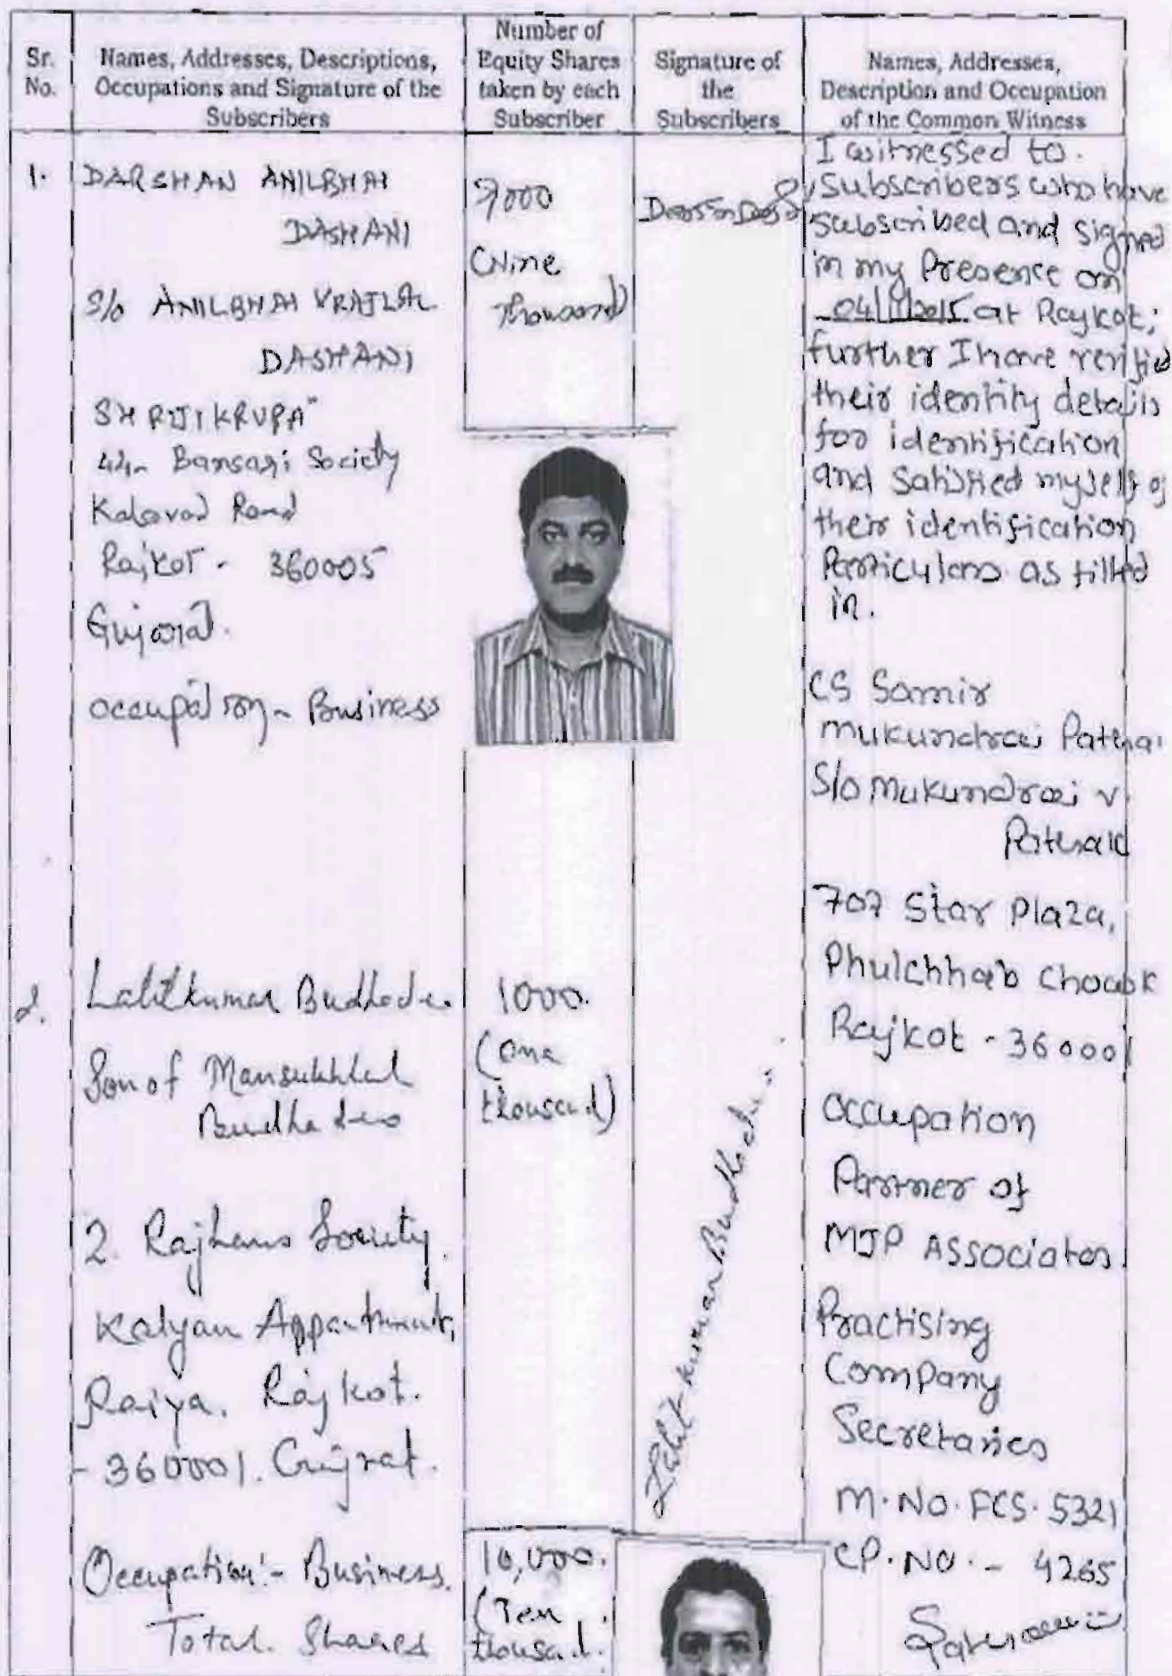 Sr. No.
Names, Addresses, Descriptions, Occupations and Signature of the Subscribers
Number of Equity Shares taken by each Subscriber
Signature of the Subscribers
Names, Addresses, Description and Occupation of the Common Witness
1.
DARSHAN ANILBHAI
DASHANI
S/o ANILBHAI VRAJLAL
DASHANI
SHRIJIKRUPA"
44- Bansari Society
Kalavad Road
Rajkot - 360005
Gujarat.
occupation - Business
9000
(Nine
thousand)
I witnessed to.
Subscribers who have
subscribed and signed
in my Presence on
04/11/2015 at Rajkot;
further I have verified
their identity details
for identification
and satisfied myself of
their identification
Particulars as filled
in.
CS Samir
Mukundrai
S/o Mukundrai V.
707 Star Plaza,
Phulchhab Chowk
Rajkot - 360001
Occupation
Partner of
MJP Associates
Practising
Company
Secretaries
M. NO. FCS. 5321
CP. NO. - 4265
2.
Lalitkumar Budhadeo
Son of Mansukhlal
Budhadeo
2. Rajhans Society.
Kalyan Appartment,
Raiya. Rajkot.
- 360001. Gujrat.
Occupation:- Business.
Total. Shares
1000.
(One
thousand)
Lalitkumar Budhadeo
10,000.
(Ten
thousand.